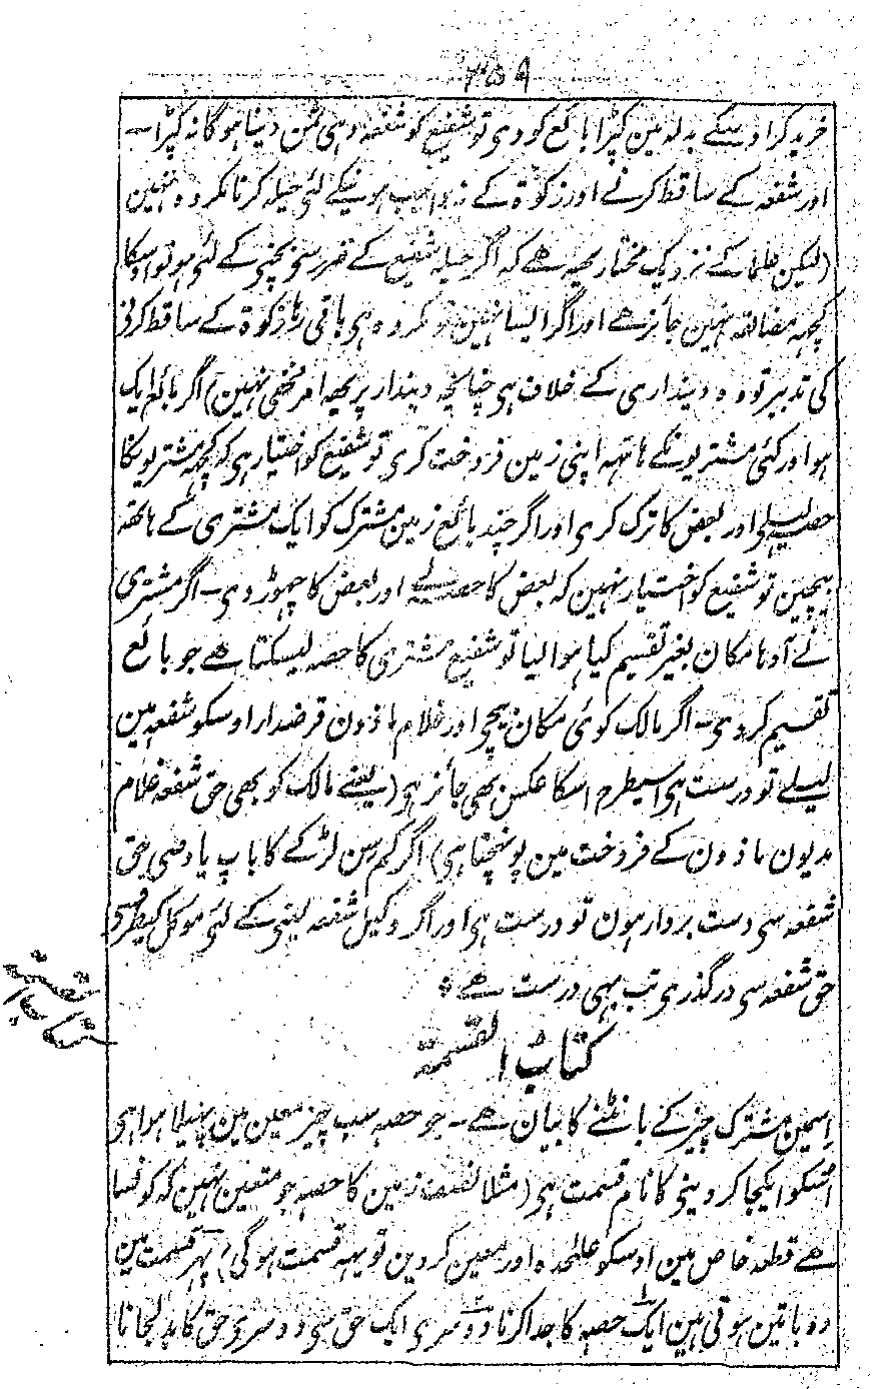 ۳۵۹
خرید کر اوسکے بدلہ مین کپڑا بائع کو دی تو شفیع کو شفعہ وہی ثمن دینا ہوگا نہ کپڑا۔
اور شفعہ کے ساقط کرنے اور زکوٰۃ کے نہ واجب ہونیکے لئی حیلہ کرنا مکروہ نہین
(لیکن علما کے نزدیک مختار یہہ ہے کہ اگر حیلہ شفیع کے ضرر سی بچنی کے لئی ہو تو اوسکا
کچہہ مضائقہ نہین جائز ہے اور اگر ایسا نہین تو مکروہ ہی باقی رہا زکوٰۃ کے ساقط کرنی
کی تدبیر تو وہ دینداری کے خلاف ہی چنانچہ دیندار پر یہہ امر مخفی نہین) اگر بائع ایک
ہو اور کئی مشتریونکے ہاتہہ اپنی زمین فروخت کری تو شفیع کو اختیار ہی کہ کچہہ مشتریونکا
حصہ لیلی اور بعض کا ترک کری اور اگر چند بائع زمین مشترک کو ایک مشتری کے ہاتھہ
بیچین تو شفیع کو اختیار نہین کہ بعض کا حصہ لے اور بعض کا چہوڑ دی۔ اگر مشتری
نے آدہا مکان بغیر تقسیم کیا ہوا لیا تو شفیع مشتری کا حصہ لیسکتا ہے جو بائع
تقسیم کر دی۔ اگر مالک کوئی مکان بیچی اور غلام ماذون قرضدار اوسکو شفعہ مین
لیلے تو درست ہی اسیطرح اسکا عکس بھی جائز ہی (یعنے مالک کو بھی حق شفعہ غلام
مدیون ماذون کے فروخت مین پونہچتا ہی) اگر کم سن لڑکے کا باپ یا وصی حق
شفعہ سی دست بردار ہون تو درست ہی اور اگر وکیل شفعہ لینی کے لئی موکل کیطرف سی
حق شفعہ سی درگذری تب بہی درست ہے
کتاب القسمۃ
کتاب القسمۃ
اسمین مشترک چیز کے بانٹنے کا بیان ہے۔ جو حصہ سب چیز معین مین پہیلا ہوا ہی
اسکو ایکجا کر دینی کا نام قسمت ہی (مثلا نصف زمین کا حصہ جو متعین نہین کہ کونسا
ہے قطعہ خاص مین اوسکو علٰحدہ اور معین کر دین تو یہہ قسمت ہوگی) پہر قسمت مین
دو باتین ہوتی ہین ایک حصہ کا جدا کرنا دوسری ایک حق سی دوسری حق کا بدلجانا